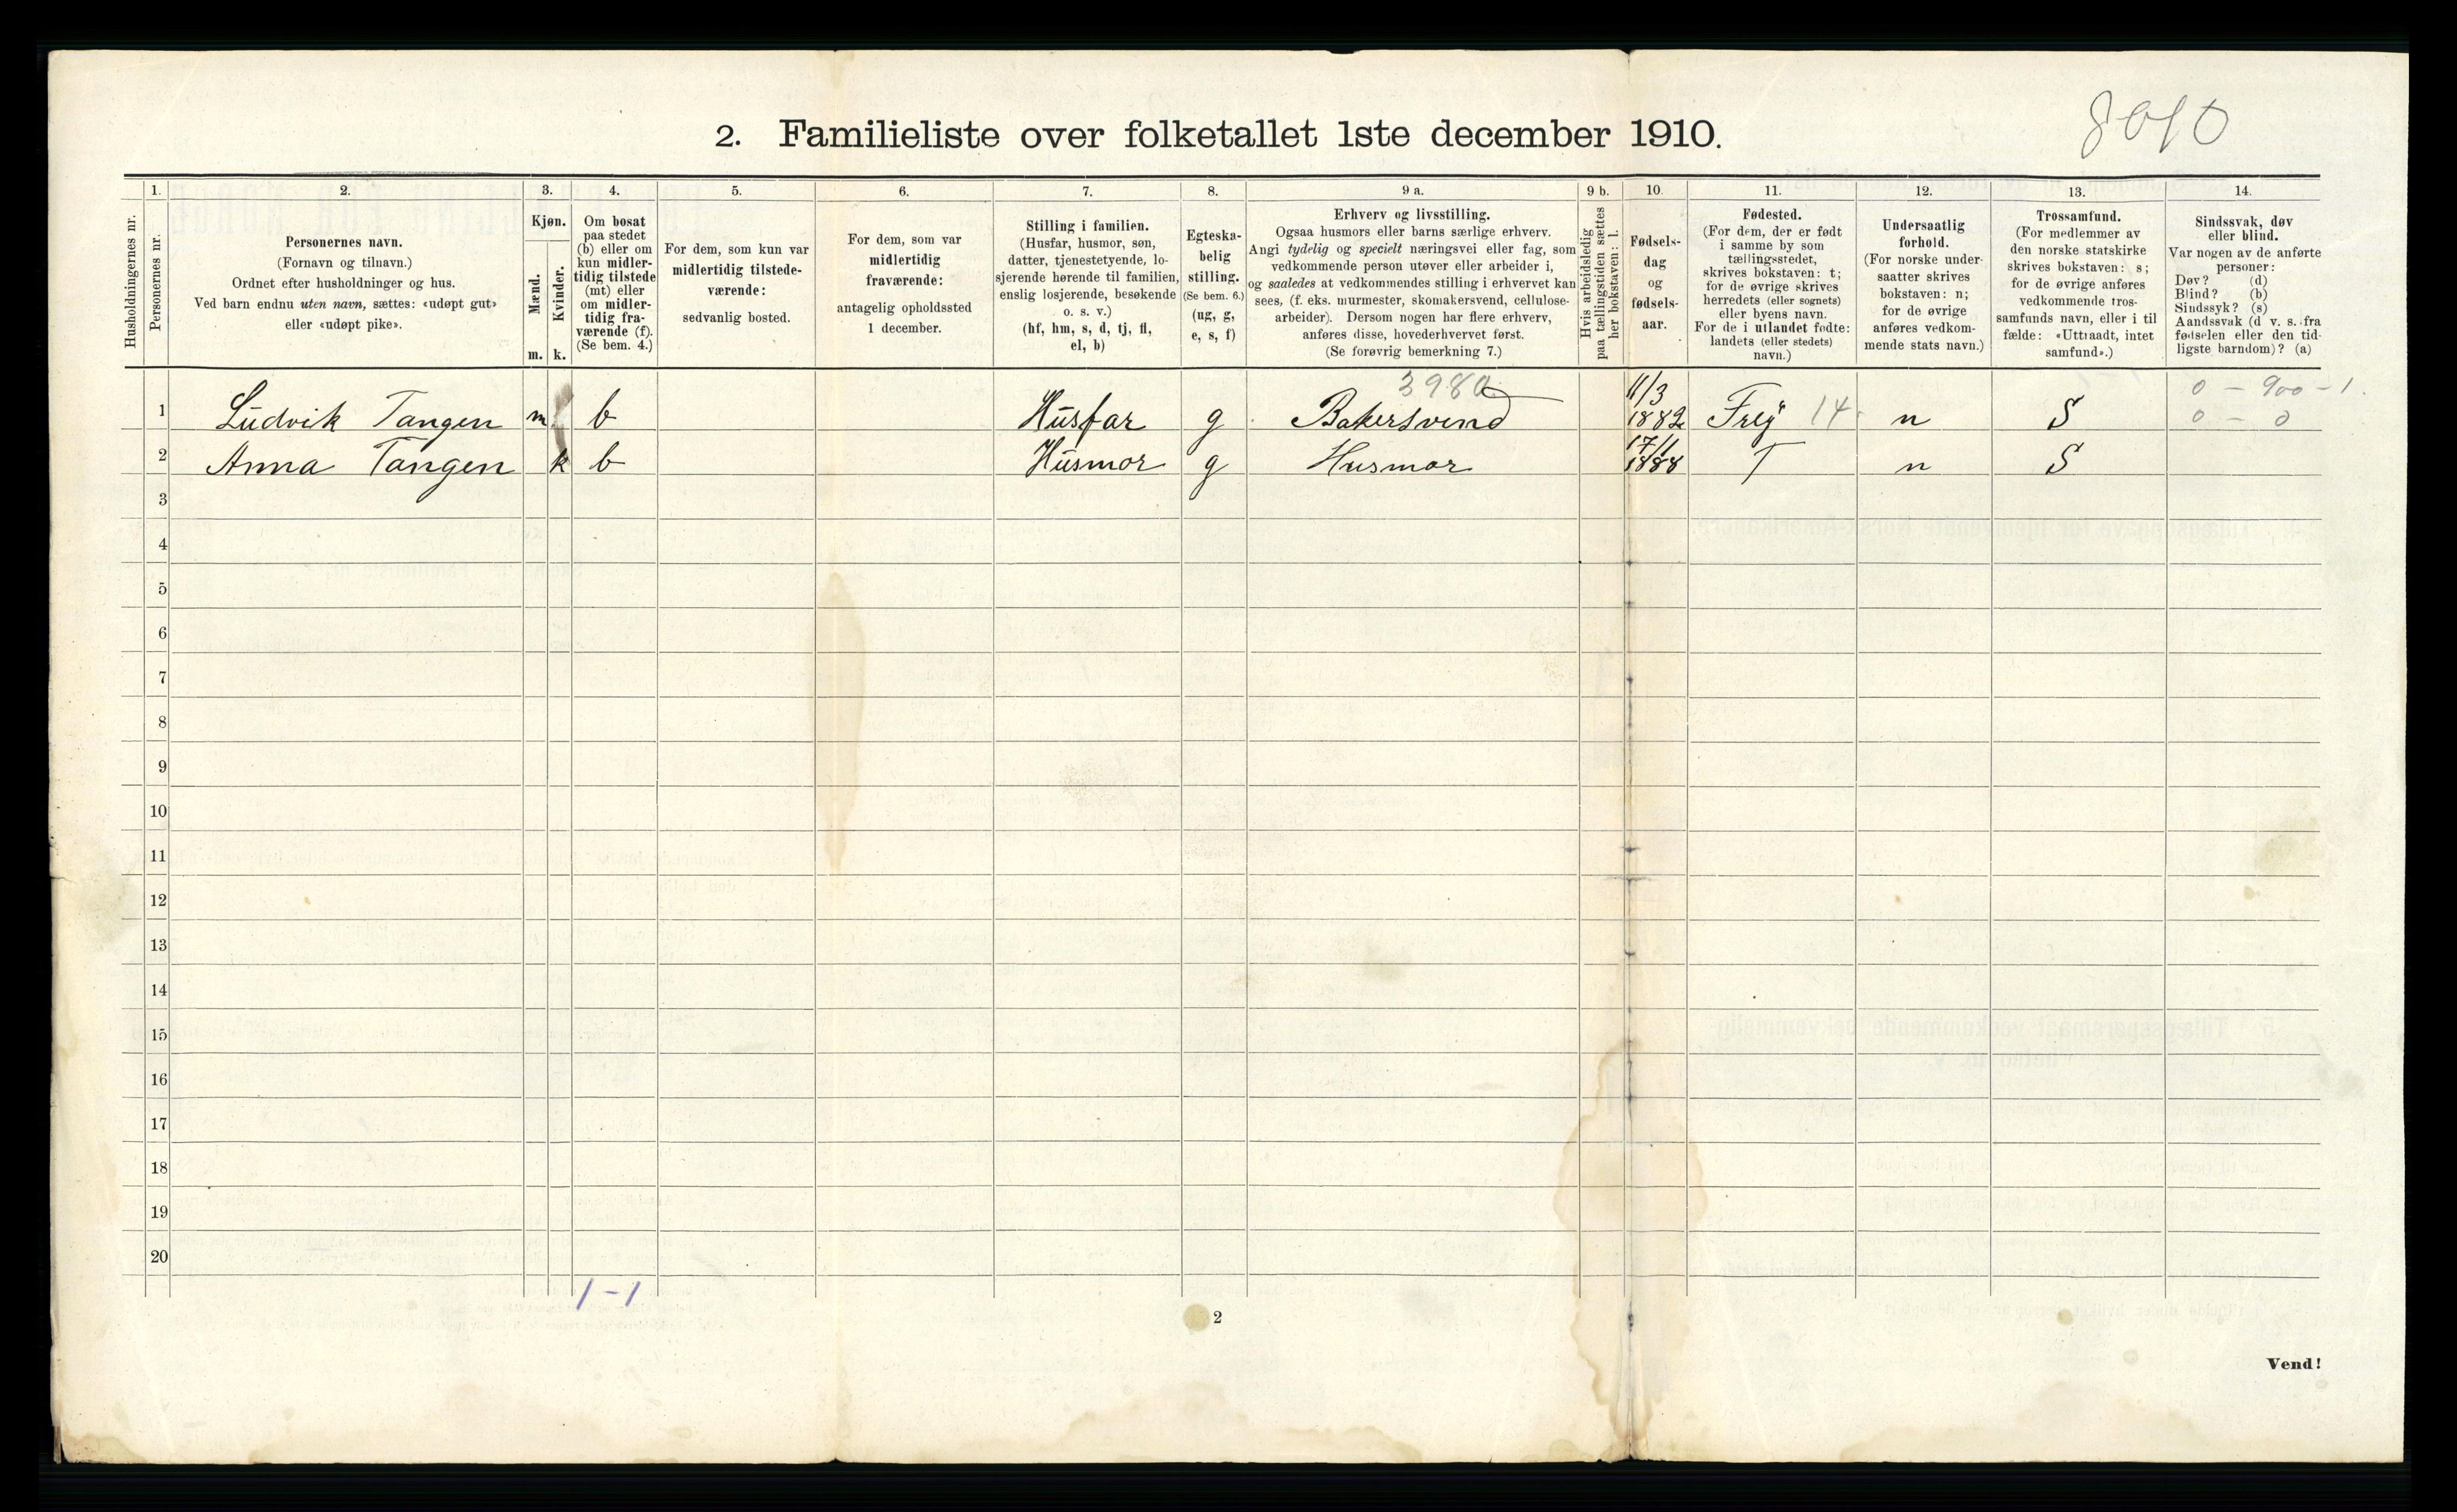 8010
2. Familieliste over folketallet 1ste december 1910.
Husholdningernes nr.
1.
Personernes nr.
2.
Personernes navn.
(Fornavn og tilnavn.)
Ordnet efter husholdninger og hus.
Ved barn endnu uten navn, sættes: «udøpt gut»
eller «udøpt pike».
3.
Kjøn.
Mænd.
Kvinder.
m. k.
4.
Om bosat
paa stedet
(b) eller om
kun midler-
tidig tilstede
(mt) eller
om midler-
tidig fra-
værende (f).
(Se bem. 4.)
5.
For dem, som kun var
midlertidig tilstede-
værende:
sedvanlig bosted.
6.
For dem, som var
midlertidig
fraværende:
antagelig opholdssted
1 december.
7.
Stilling i familien.
(Husfar, husmor, søn,
datter, tjenestetyende, lo-
sjerende hørende til familien,
enslig losjerende, besøkende
o. s. v.)
(hf, hm, s, d, tj, fl,
el, b)
8.
Egteska-
belig
stilling.
(Se bem. 6.)
(ug, g,
e, s, f)
9 a.
Erhverv og livsstilling.
Ogsaa husmors eller barns særlige erhverv.
Angi tydelig og specielt næringsvei eller fag, som
vedkommende person utøver eller arbeider i,
og saaledes at vedkommendes stilling i erhvervet kan
sees, (f. eks. murmester, skomakersvend, cellulose-
arbeider). Dersom nogen har flere erhverv,
anføres disse, hovederhvervet først.
(Se forøvrig bemerkning 7.)
9 b.
Hvis arbeidsledig
paa tællingstiden sættes
her bokstaven: l.
10.
Fødsels-
dag
og
fødsels-
aar.
11.
Fødested.
(For dem, der er født
i samme by som
tællingsstedet,
skrives bokstaven: t;
for de øvrige skrives
herredets (eller sognets)
eller byens navn.
For de i utlandet fødte:
landets (eller stedets)
navn.)
12.
Undersaatlig
forhold.
(For norske under-
saatter skrives
bokstaven: n;
for de øvrige
anføres vedkom-
mende stats navn.)
13.
Trossamfund.
(For medlemmer av
den norske statskirke
skrives bokstaven: s;
for de øvrige anføres
vedkommende tros-
samfunds navn, eller i til
fælde: «Uttraadt, intet
samfund».)
14.
Sindssvak, døv
eller blind.
Var nogen av de anførte
personer:
Døv? (d)
Blind? (b)
Sindssyk? (s)
Aandssvak (d v. s. fra
fødselen eller den tid-
ligste barndom)? (a)
3980 11/3 0 – 900 – 1.
1 Ludvik Tangen m b Husfar g Bakersvend 1882 Frej 14 n S 0 – 0
17/1
2 Anna Tangen k b Husmor g Husmor 1888 T n S
3
4
5
6
7
8
9
10
11
12
13
14
15
16
17
18
19
20
1 – 1
2
Vend!